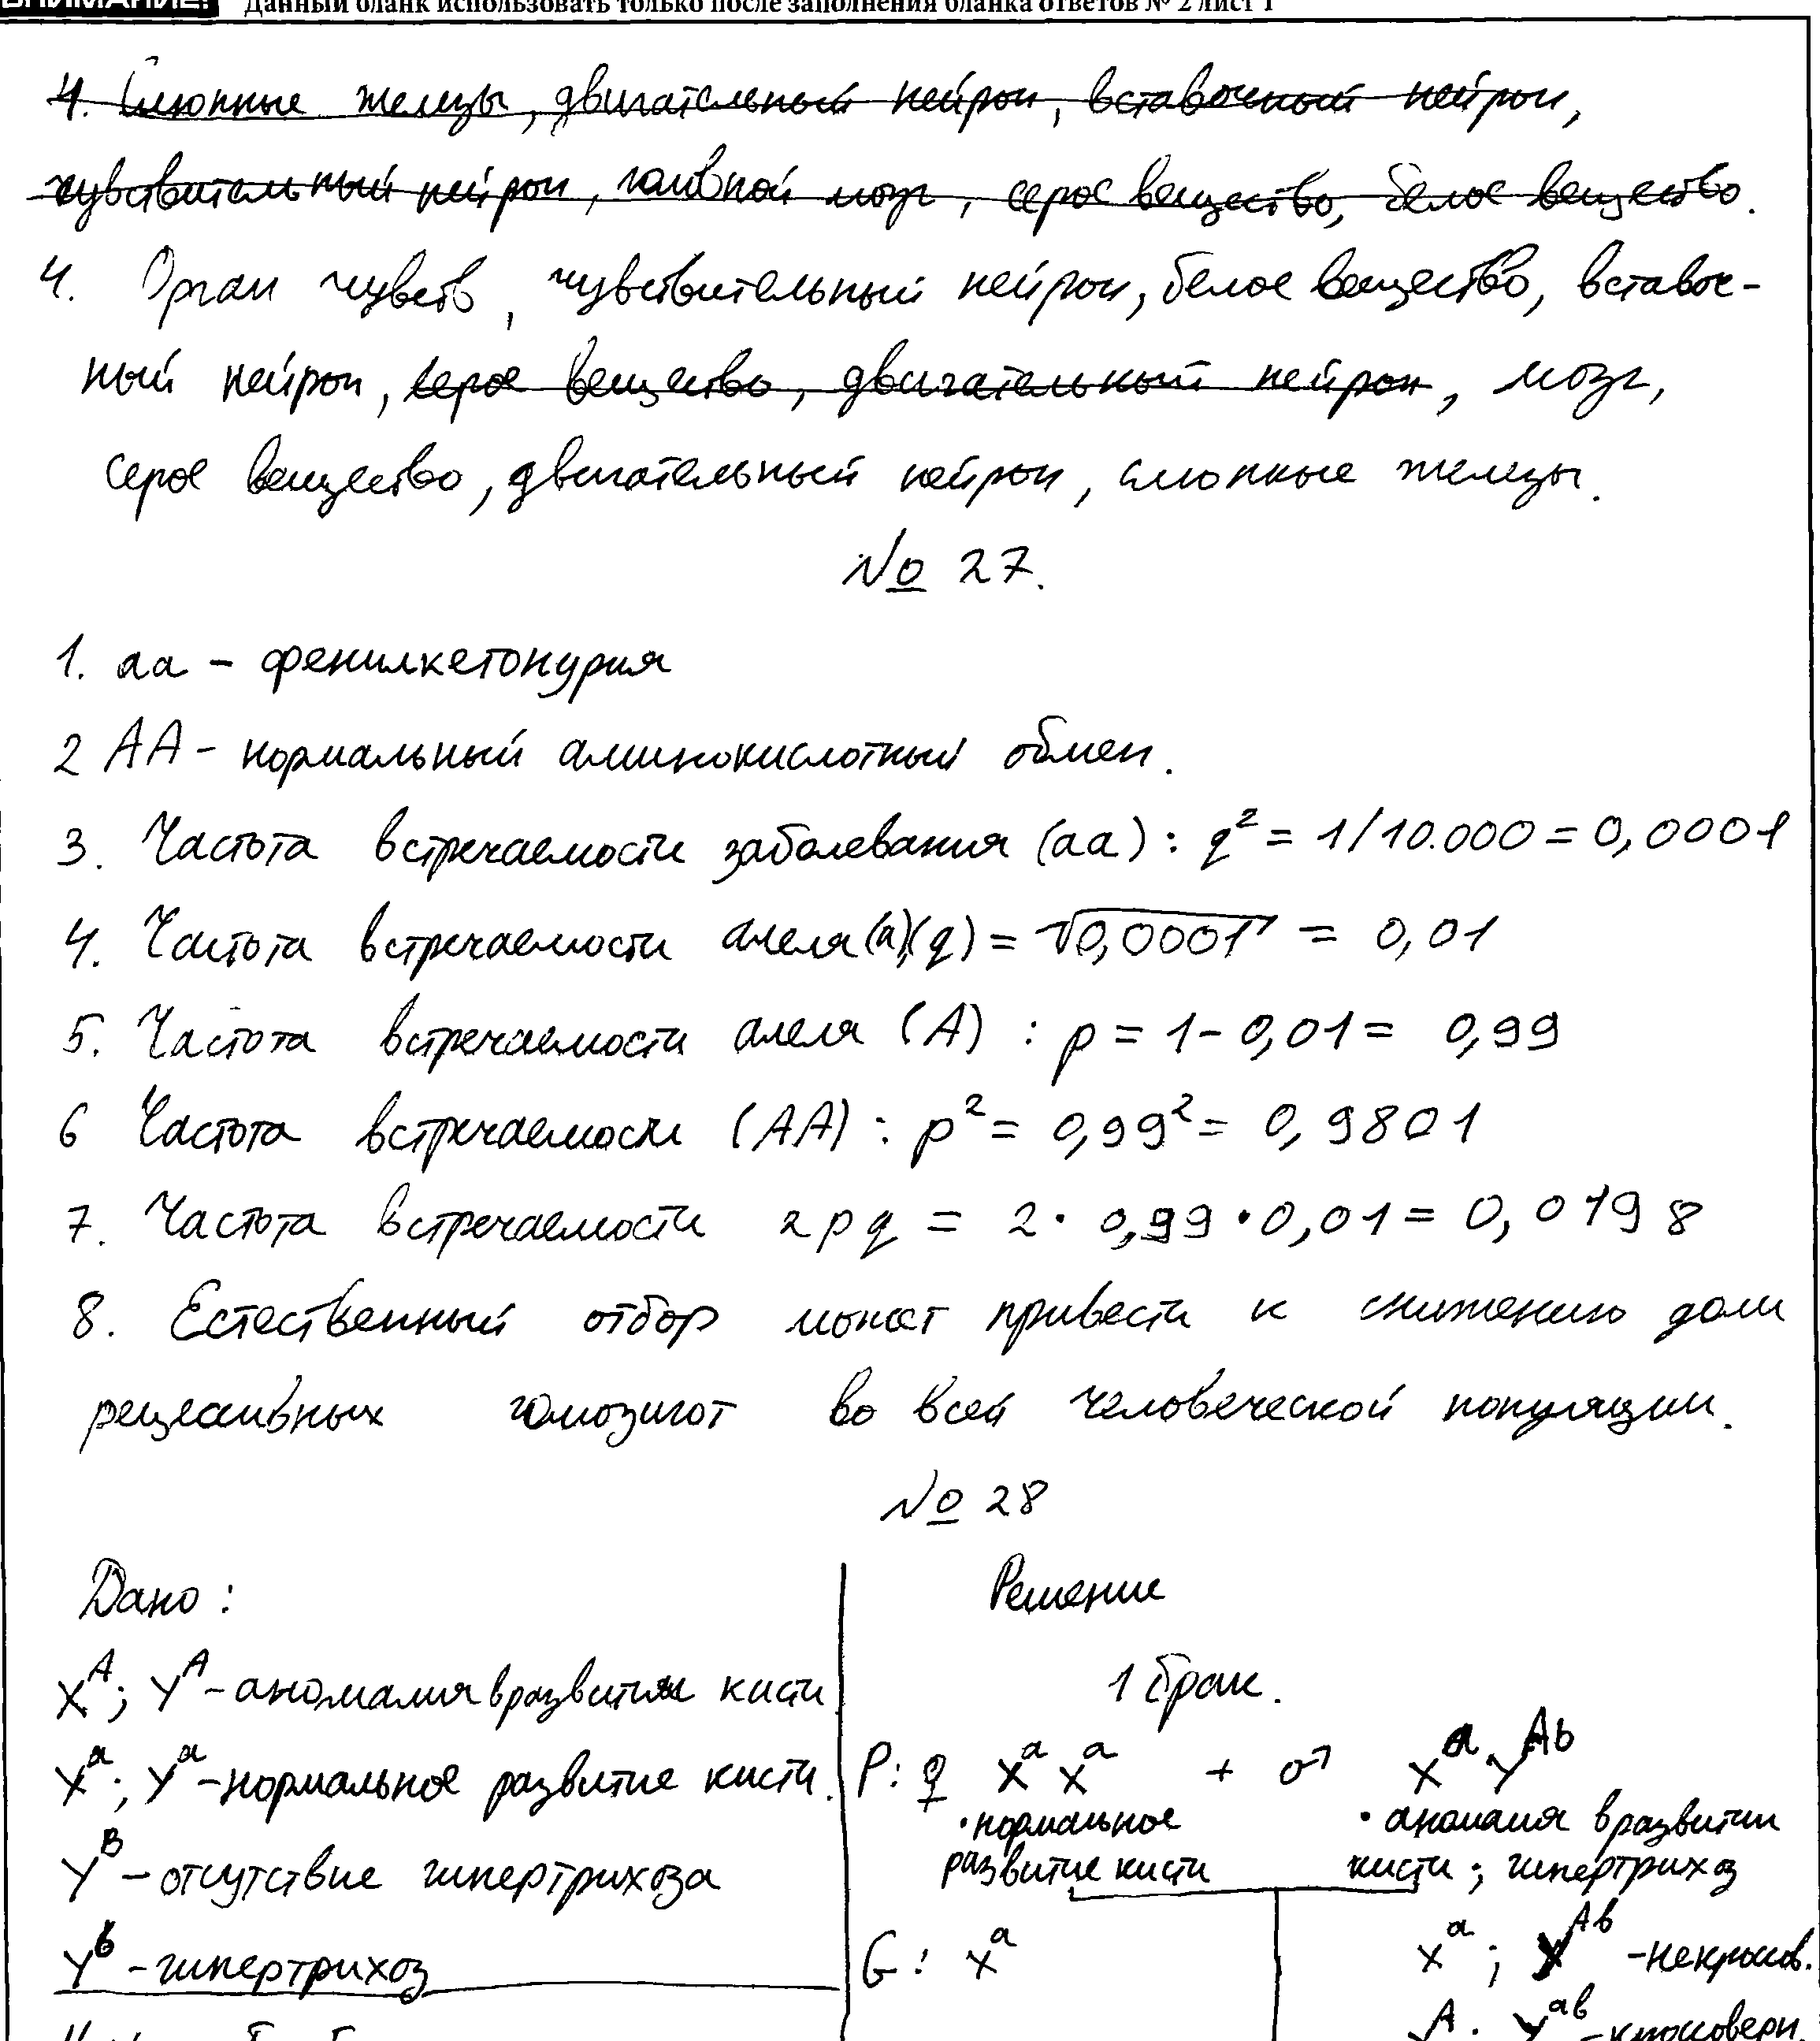 ВНИМАНИЕ! Данный бланк использовать только после заполнения бланка ответов № 2 лист 1
4. Слюнные железы, двигательный нейрон, вставочный нейрон,
чувствительный нейрон, головной мозг, серое вещество, белое вещество.
4. Орган чувств, чувствительный нейрон, белое вещество, вставоч-
ный нейрон, серое вещество, двигательный нейрон, мозг,
серое вещество, двигательный нейрон, слюнные железы.
№ 27.
1. аа – фенилкетонурия
2 АА – нормальный аминокислотный обмен.
3. Частота встречаемости заболевания (аа) : q² = 1/10.000 = 0,0001
4. Частота встречаемости алеля (а)(q) = √0,0001 = 0,01
5. Частота встречаемости алеля (А) : p = 1 - 0,01 = 0,99
6 Частота встречаемости (АА) : p² = 0,99² = 0,9801
7. Частота встречаемости 2pq = 2 · 0,99 · 0,01 = 0,0198
8. Естественный отбор может привести к снижению доли
рецессивных гомозигот во всей человеческой популяции.
№ 28
Дано : Решение
Xᴬ; Yᴬ – аномалия в развитии кисти 1 брак.
Xᵃ; Yᵃ – нормальное развитие кисти. P: ♀ XᵃXᵃ + ♂ XᵃYᴬᵇ
· нормальное · аномалия в развитии
развитие кисти кисти ; гипертрихоз
Yᴮ – отсутствие гипертрихоза
Yᵇ – гипертрихоз G : Xᵃ Xᵃ ; Yᴬᵇ – некроссов.
Xᴬ; Yᵃᵇ – кроссоверн.